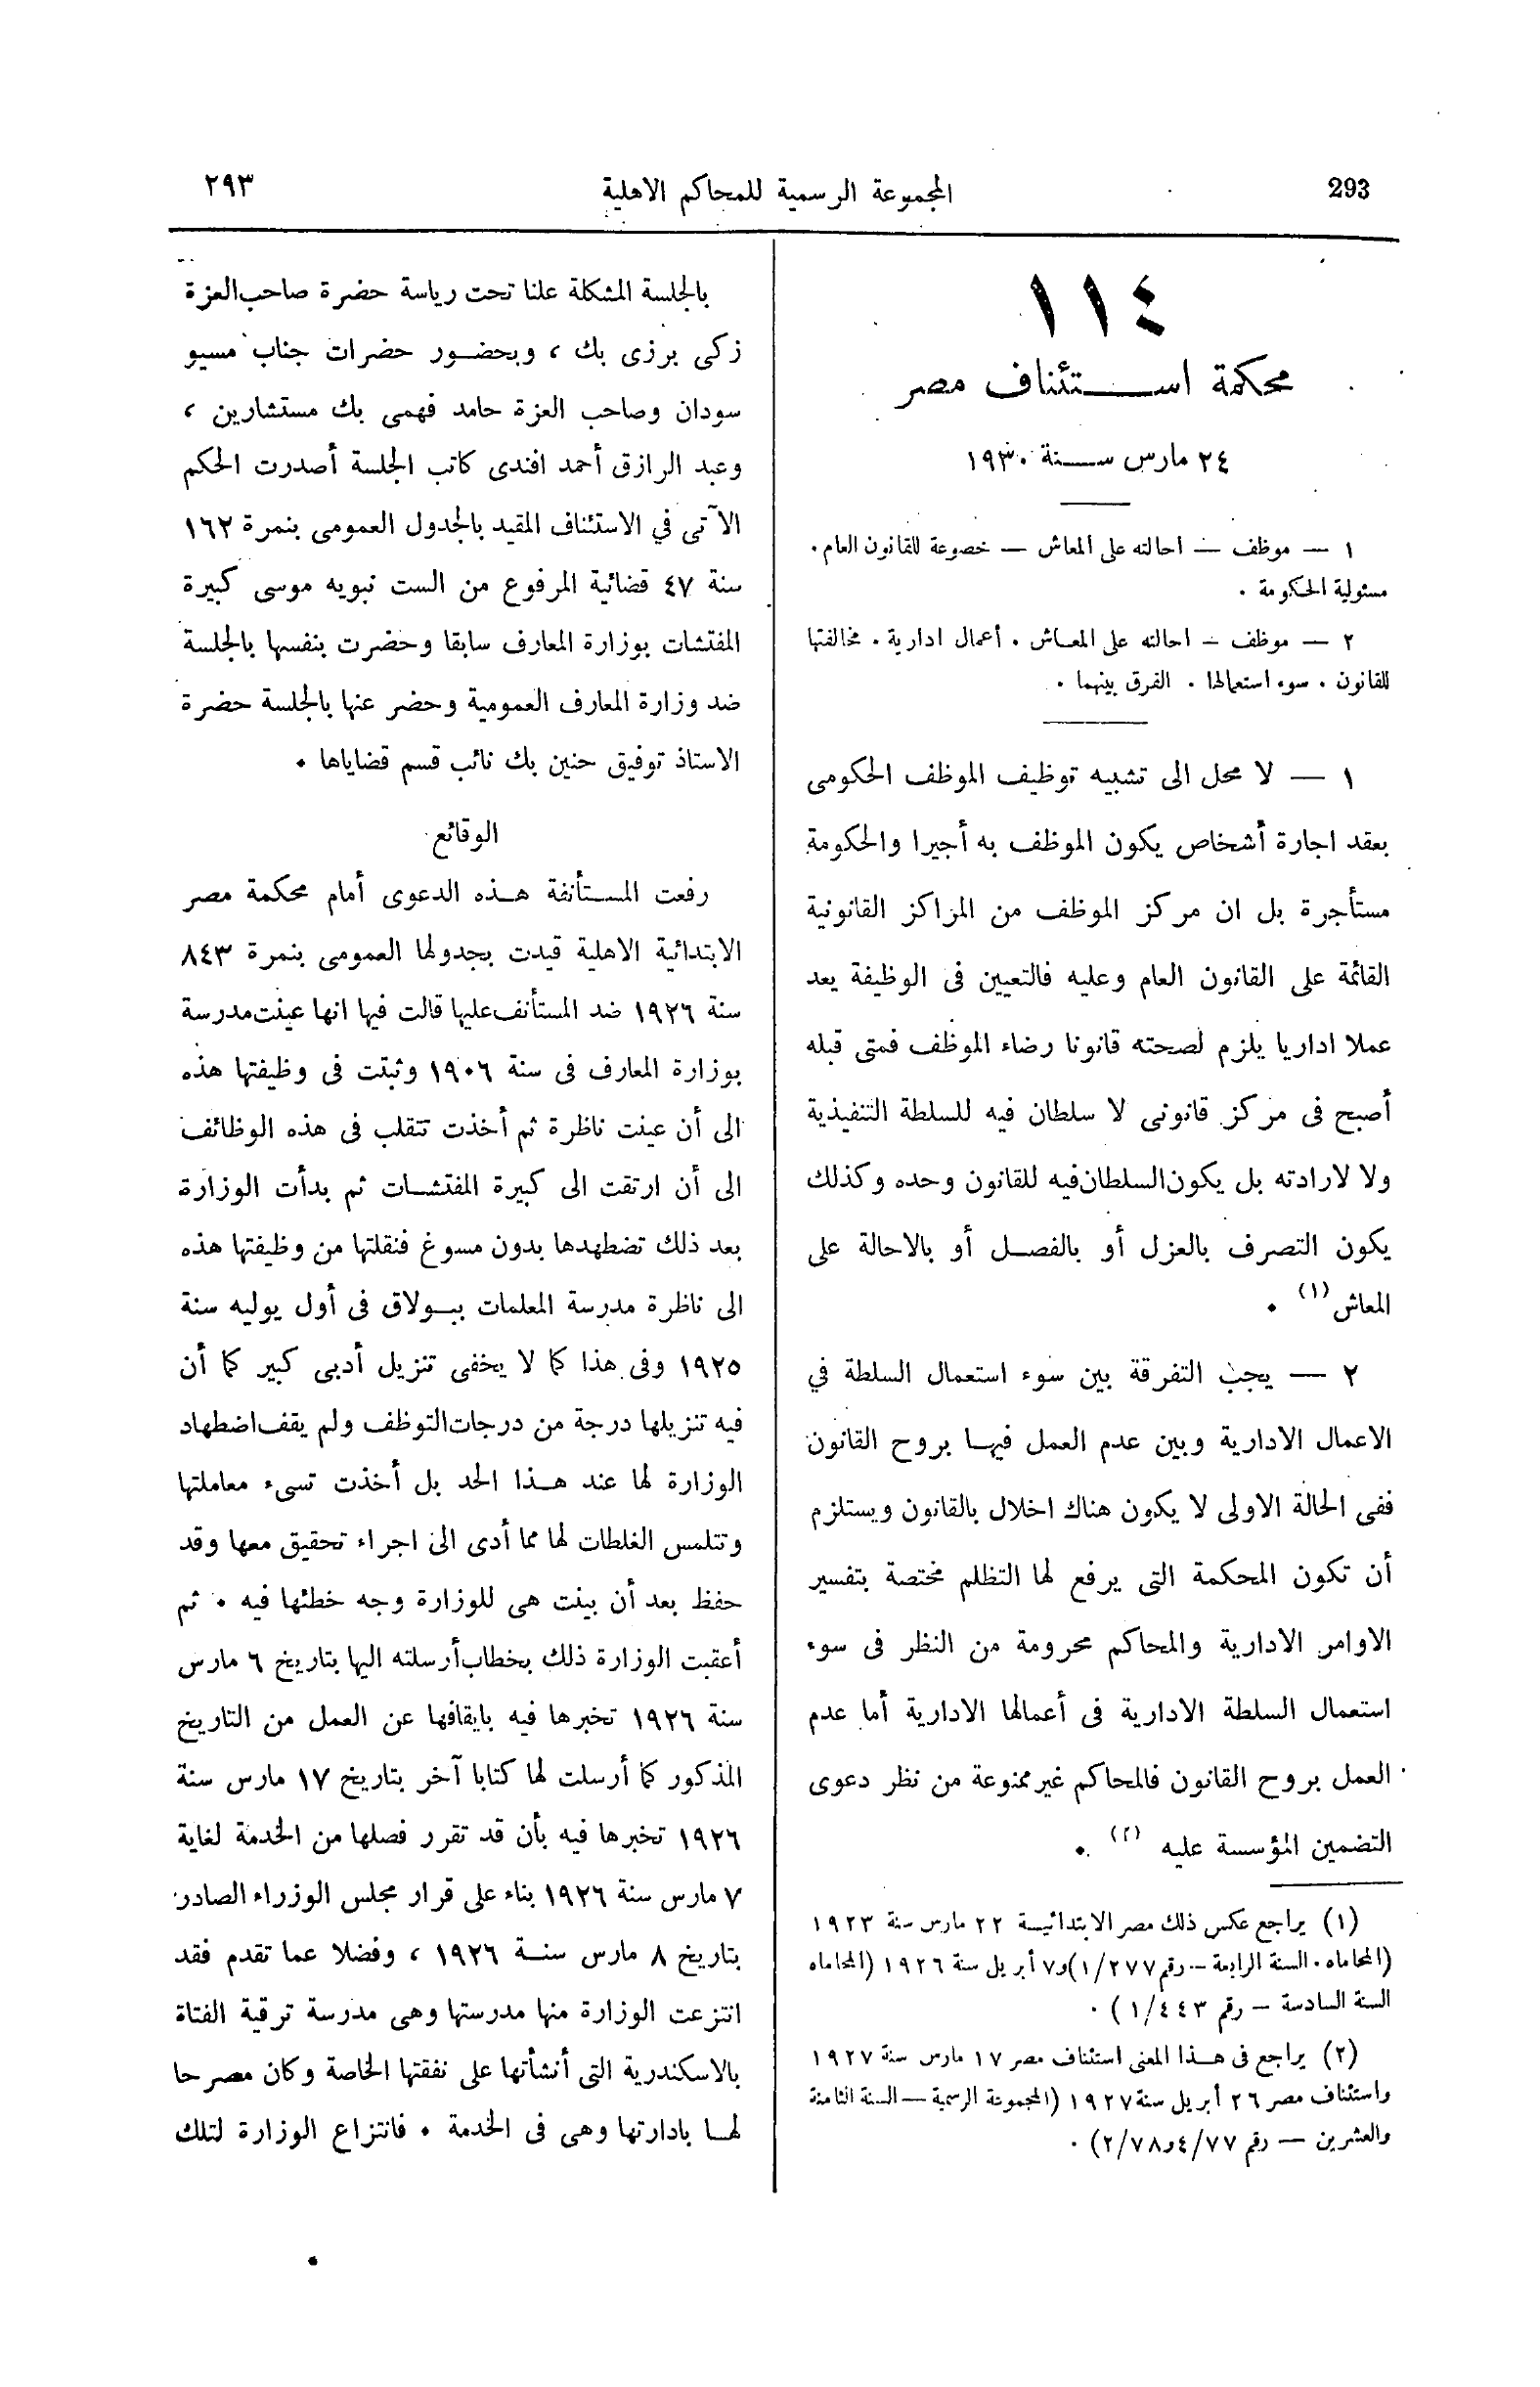 293
المجموعة الرسمية للمحاكم الاهلية
٢٩٣
١١٤
محكمة استئناف مصر
٢٤ مارس سنة ١٩٣٠
١ — موظف — احالته على المعاش — خضوعه للقانون العام.
مسئولية الحكومة .
٢ — موظف — احالته على المعاش . أعمال ادارية . مخالفتها
للقانون . سوء استعمالها . الفرق بينهما .
١ — لا محل الى تشبيه توظيف الموظف الحكومى
بعقد اجارة أشخاص يكون الموظف به أجيرا والحكومة
مستأجرة بل ان مركز الموظف من المراكز القانونية
القائمة على القانون العام وعليه فالتعيين فى الوظيفة يعد
عملا اداريا يلزم لصحته قانونا رضاء الموظف فمتى قبله
أصبح فى مركز قانونى لا سلطان فيه للسلطة التنفيذية
ولا لارادته بل يكون السلطان فيه للقانون وحده وكذلك
يكون التصرف بالعزل أو بالفصل أو بالاحالة على
المعاش (١) .
٢ — يجب التفرقة بين سوء استعمال السلطة في
الاعمال الادارية وبين عدم العمل فيها بروح القانون
ففى الحالة الاولى لا يكون هناك اخلال بالقانون ويستلزم
أن تكون المحكمة التى يرفع لها التظلم مختصة بتفسير
الاوامر الادارية والمحاكم محرومة من النظر فى سوء
استعمال السلطة الادارية فى أعمالها الادارية أما عدم
العمل بروح القانون فالمحاكم غير ممنوعة من نظر دعوى
التضمين المؤسسة عليه (٢) .
(١) يراجع عكس ذلك مصر الابتدائية ٢٢ مارس سنة ١٩٢٣
(المحاماه . السنة الرابعة — رقم ١/٢٧٧) و٧ أبريل سنة ١٩٢٦ (المحاماه
السنة السادسة — رقم ١/٤٤٣) .
(٢) يراجع فى هذا المعنى استئناف مصر ١٧ مارس سنة ١٩٢٧
واستئناف مصر ٢٦ أبريل سنة ١٩٢٧ (المجموعة الرسمية — السنة الثامنة
والعشرين — رقم ٤/٧٧ و٢/٧٨) .
بالجلسة المشكلة علنا تحت رياسة حضرة صاحب العزة
زكى برزى بك ، وبحضور حضرات جناب مسيو
سودان وصاحب العزة حامد فهمى بك مستشارين ،
وعبد الرازق أحمد افندى كاتب الجلسة أصدرت الحكم
الآتى في الاستئناف المقيد بالجدول العمومى بنمرة ١٦٢
سنة ٤٧ قضائية المرفوع من الست نبويه موسى كبيرة
المفتشات بوزارة المعارف سابقا وحضرت بنفسها بالجلسة
ضد وزارة المعارف العمومية وحضر عنها بالجلسة حضرة
الاستاذ توفيق حنين بك نائب قسم قضاياها .
الوقائع
رفعت المستأنفة هذه الدعوى أمام محكمة مصر
الابتدائية الاهلية قيدت بجدولها العمومى بنمرة ٨٤٣
سنة ١٩٢٦ ضد المستأنف عليها قالت فيها انها عينت مدرسة
بوزارة المعارف فى سنة ١٩٠٦ وثبتت فى وظيفتها هذه
الى أن عينت ناظرة ثم أخذت تتقلب فى هذه الوظائف
الى أن ارتقت الى كبيرة المفتشات ثم بدأت الوزارة
بعد ذلك تضطهدها بدون مسوغ فنقلتها من وظيفتها هذه
الى ناظرة مدرسة المعلمات ببولاق فى أول يوليه سنة
١٩٢٥ وفى هذا كما لا يخفى تنزيل أدبى كبير كما أن
فيه تنزيلها درجة من درجات التوظف ولم يقف اضطهاد
الوزارة لها عند هذا الحد بل أخذت تسىء معاملتها
وتتلمس الغلطات لها مما أدى الى اجراء تحقيق معها وقد
حفظ بعد أن بينت هى للوزارة وجه خطئها فيه . ثم
أعقبت الوزارة ذلك بخطاب أرسلته اليها بتاريخ ٦ مارس
سنة ١٩٢٦ تخبرها فيه بايقافها عن العمل من التاريخ
المذكور كما أرسلت لها كتابا آخر بتاريخ ١٧ مارس سنة
١٩٢٦ تخبرها فيه بأن قد تقرر فصلها من الخدمة لغاية
٧ مارس سنة ١٩٢٦ بناء على قرار مجلس الوزراء الصادر
بتاريخ ٨ مارس سنة ١٩٢٦ ، وفضلا عما تقدم فقد
انتزعت الوزارة منها مدرستها وهى مدرسة ترقية الفتاة
بالاسكندرية التى أنشأتها على نفقتها الخاصة وكان مصرحا
لها بادارتها وهى فى الخدمة . فانتزاع الوزارة لتلك